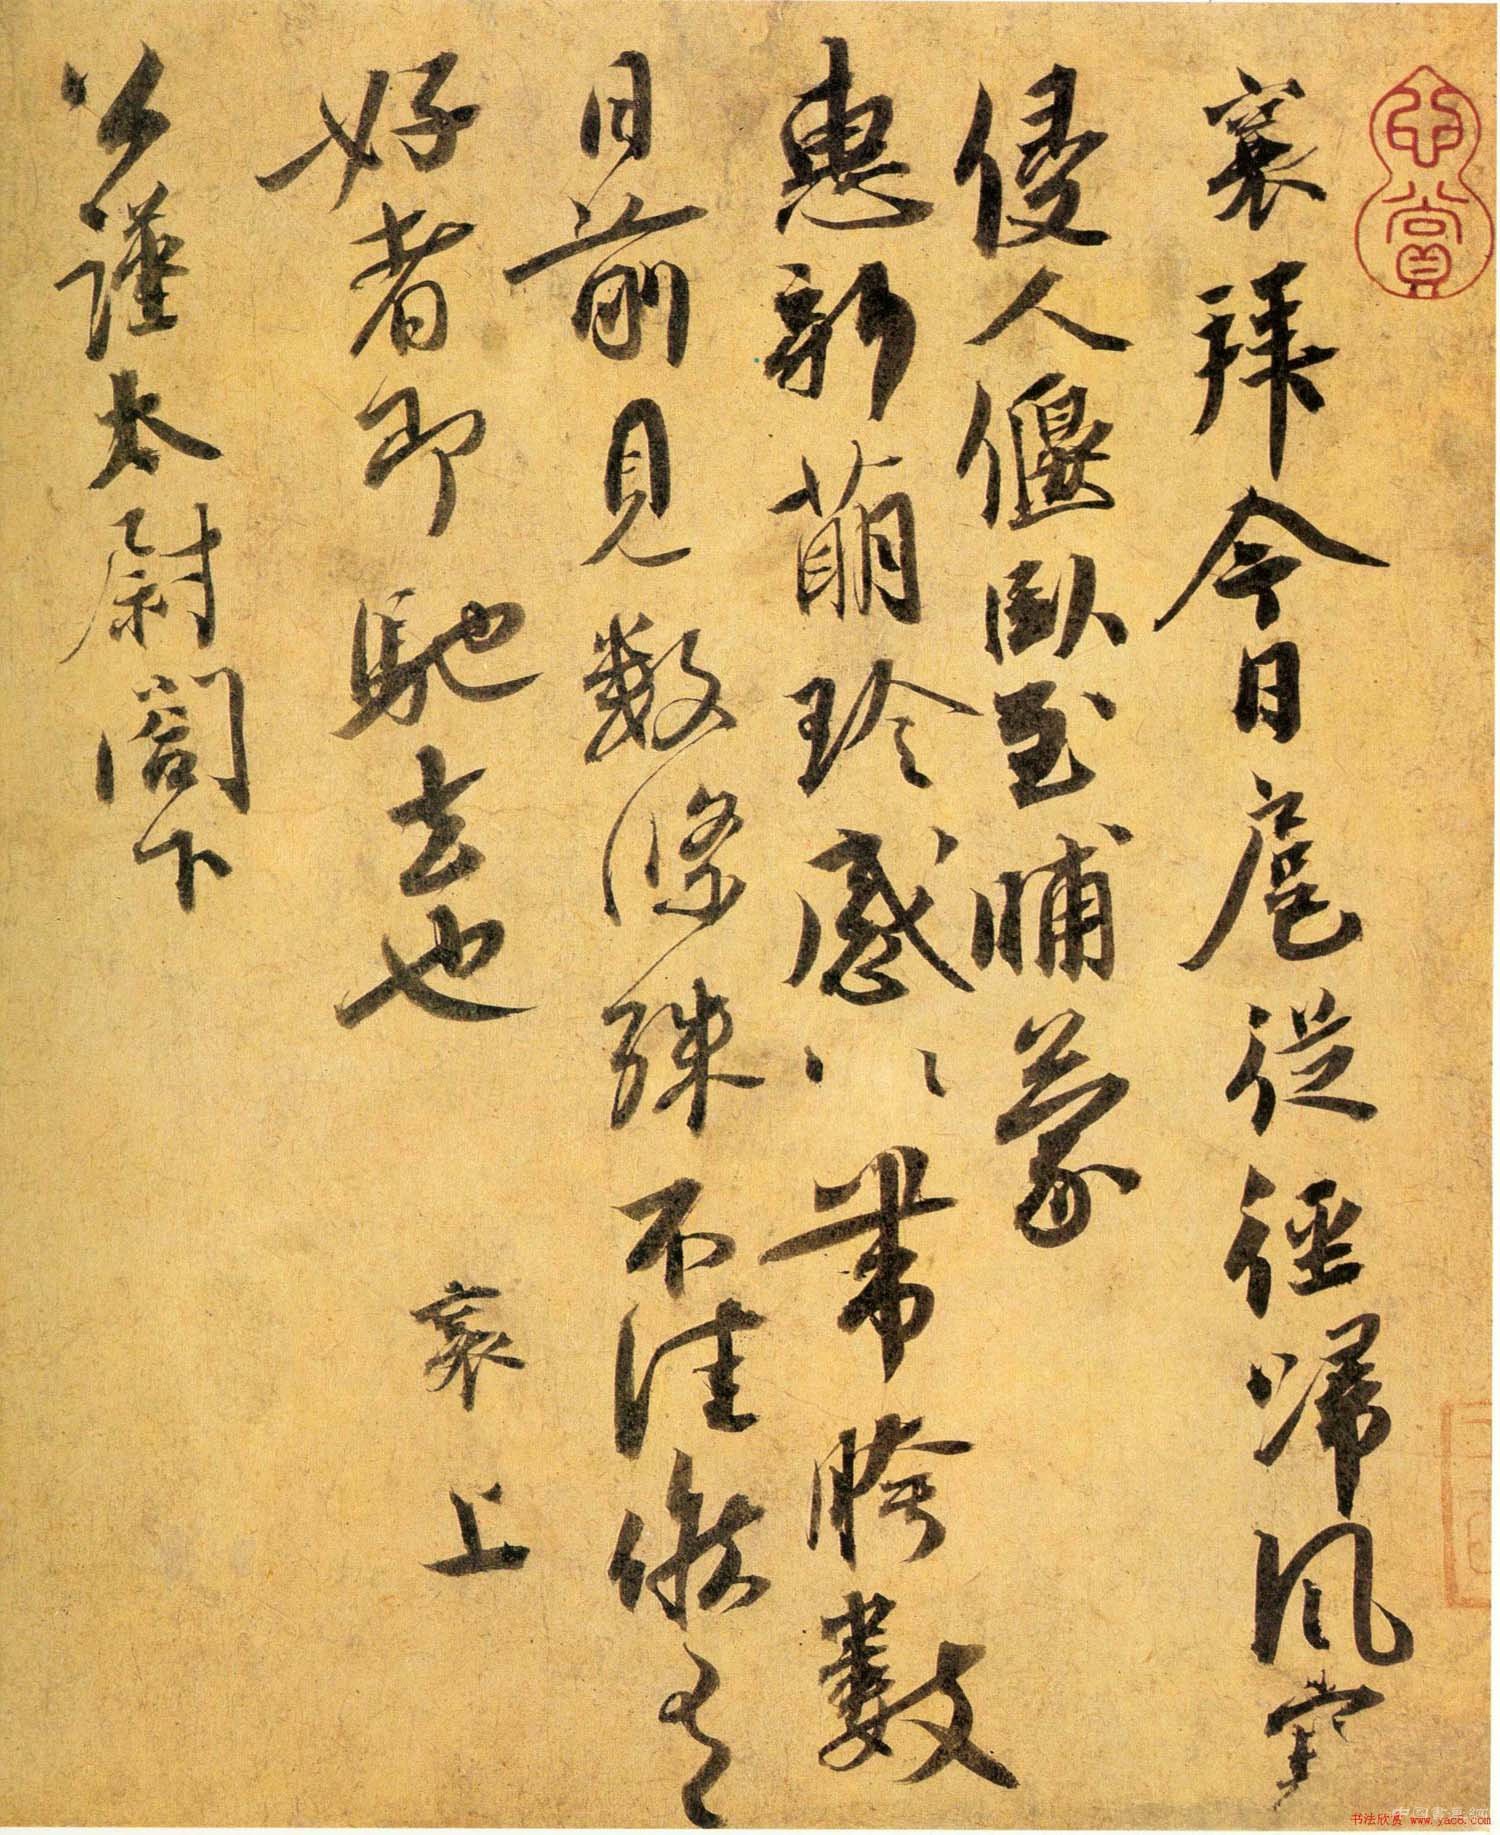 襄拜今日扈從徑歸風寒
侵人偃臥至晡蒙
惠新萌珍感〻帶胯數
日前見數條殊不佳候有
好者即馳去也
襄上
公謹太尉閤下
賞
书法欣赏 www.yac8.com